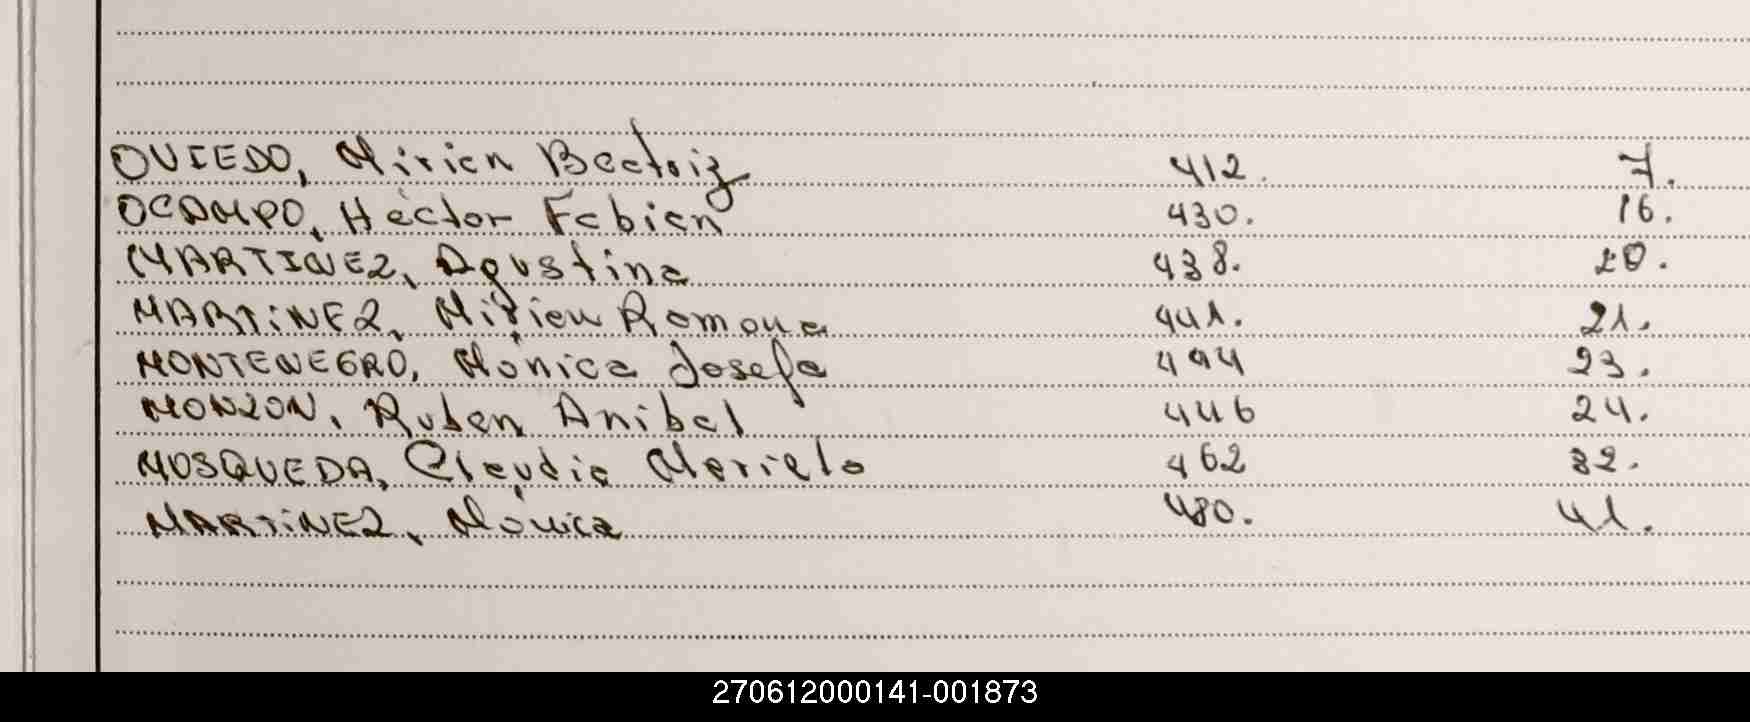 OVIEDO, Mirian Beatriz 412. 7.
OCAMPO, Héctor Fabian 430. 16.
MARTINEZ, Agustina 438. 20.
MARTINEZ, Mirian Ramona 441. 21.
MONTENEGRO, Mónica Josefa 444 23.
MONZON, Ruben Anibal 446 24.
MOSQUEDA, Claudia Mariela 462 32.
MARTINEZ, Mónica 480. 41.
270612000141-001873